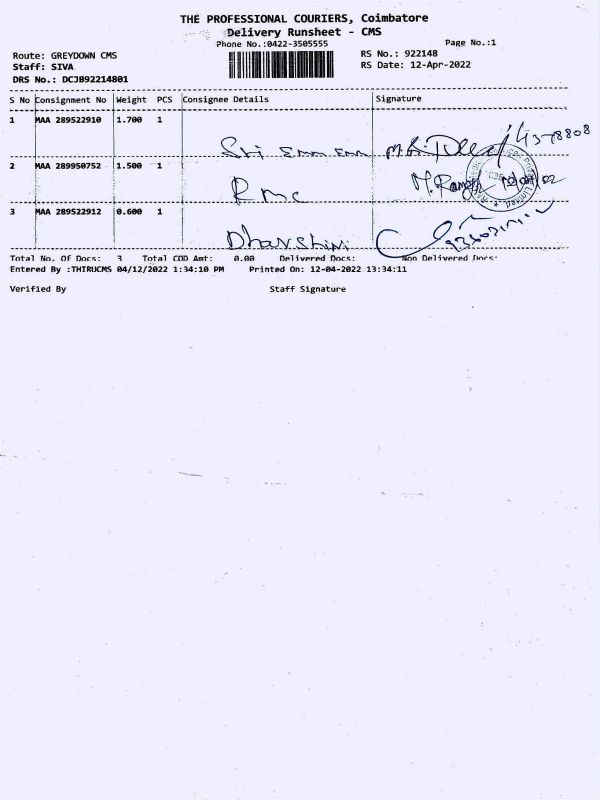 THE PROFESSIONAL COURIERS, Coimbatore
Delivery Runsheet - CMS
Phone No.:0422-3505555 Page No.:1
Route: GREYDOWN CMS RS No.: 922148
Staff: SIVA RS Date: 12-Apr-2022
DRS No.: DCJB92214801
S No Consignment No Weight PCS Consignee Details Signature
1 MAA 289522910 1.700 1
Sri Emm Emm
2 MAA 289950752 1.500 1
Rmc M. Ramesh
3 MAA 289522912 0.600 1
Dharshini
Total No. Of Docs: 3 Total COD Amt: 0.00 Delivered Docs: Non Delivered Docs:
Entered By :THIRUCMS 04/12/2022 1:34:10 PM Printed On: 12-04-2022 13:34:11
Verified By Staff Signature